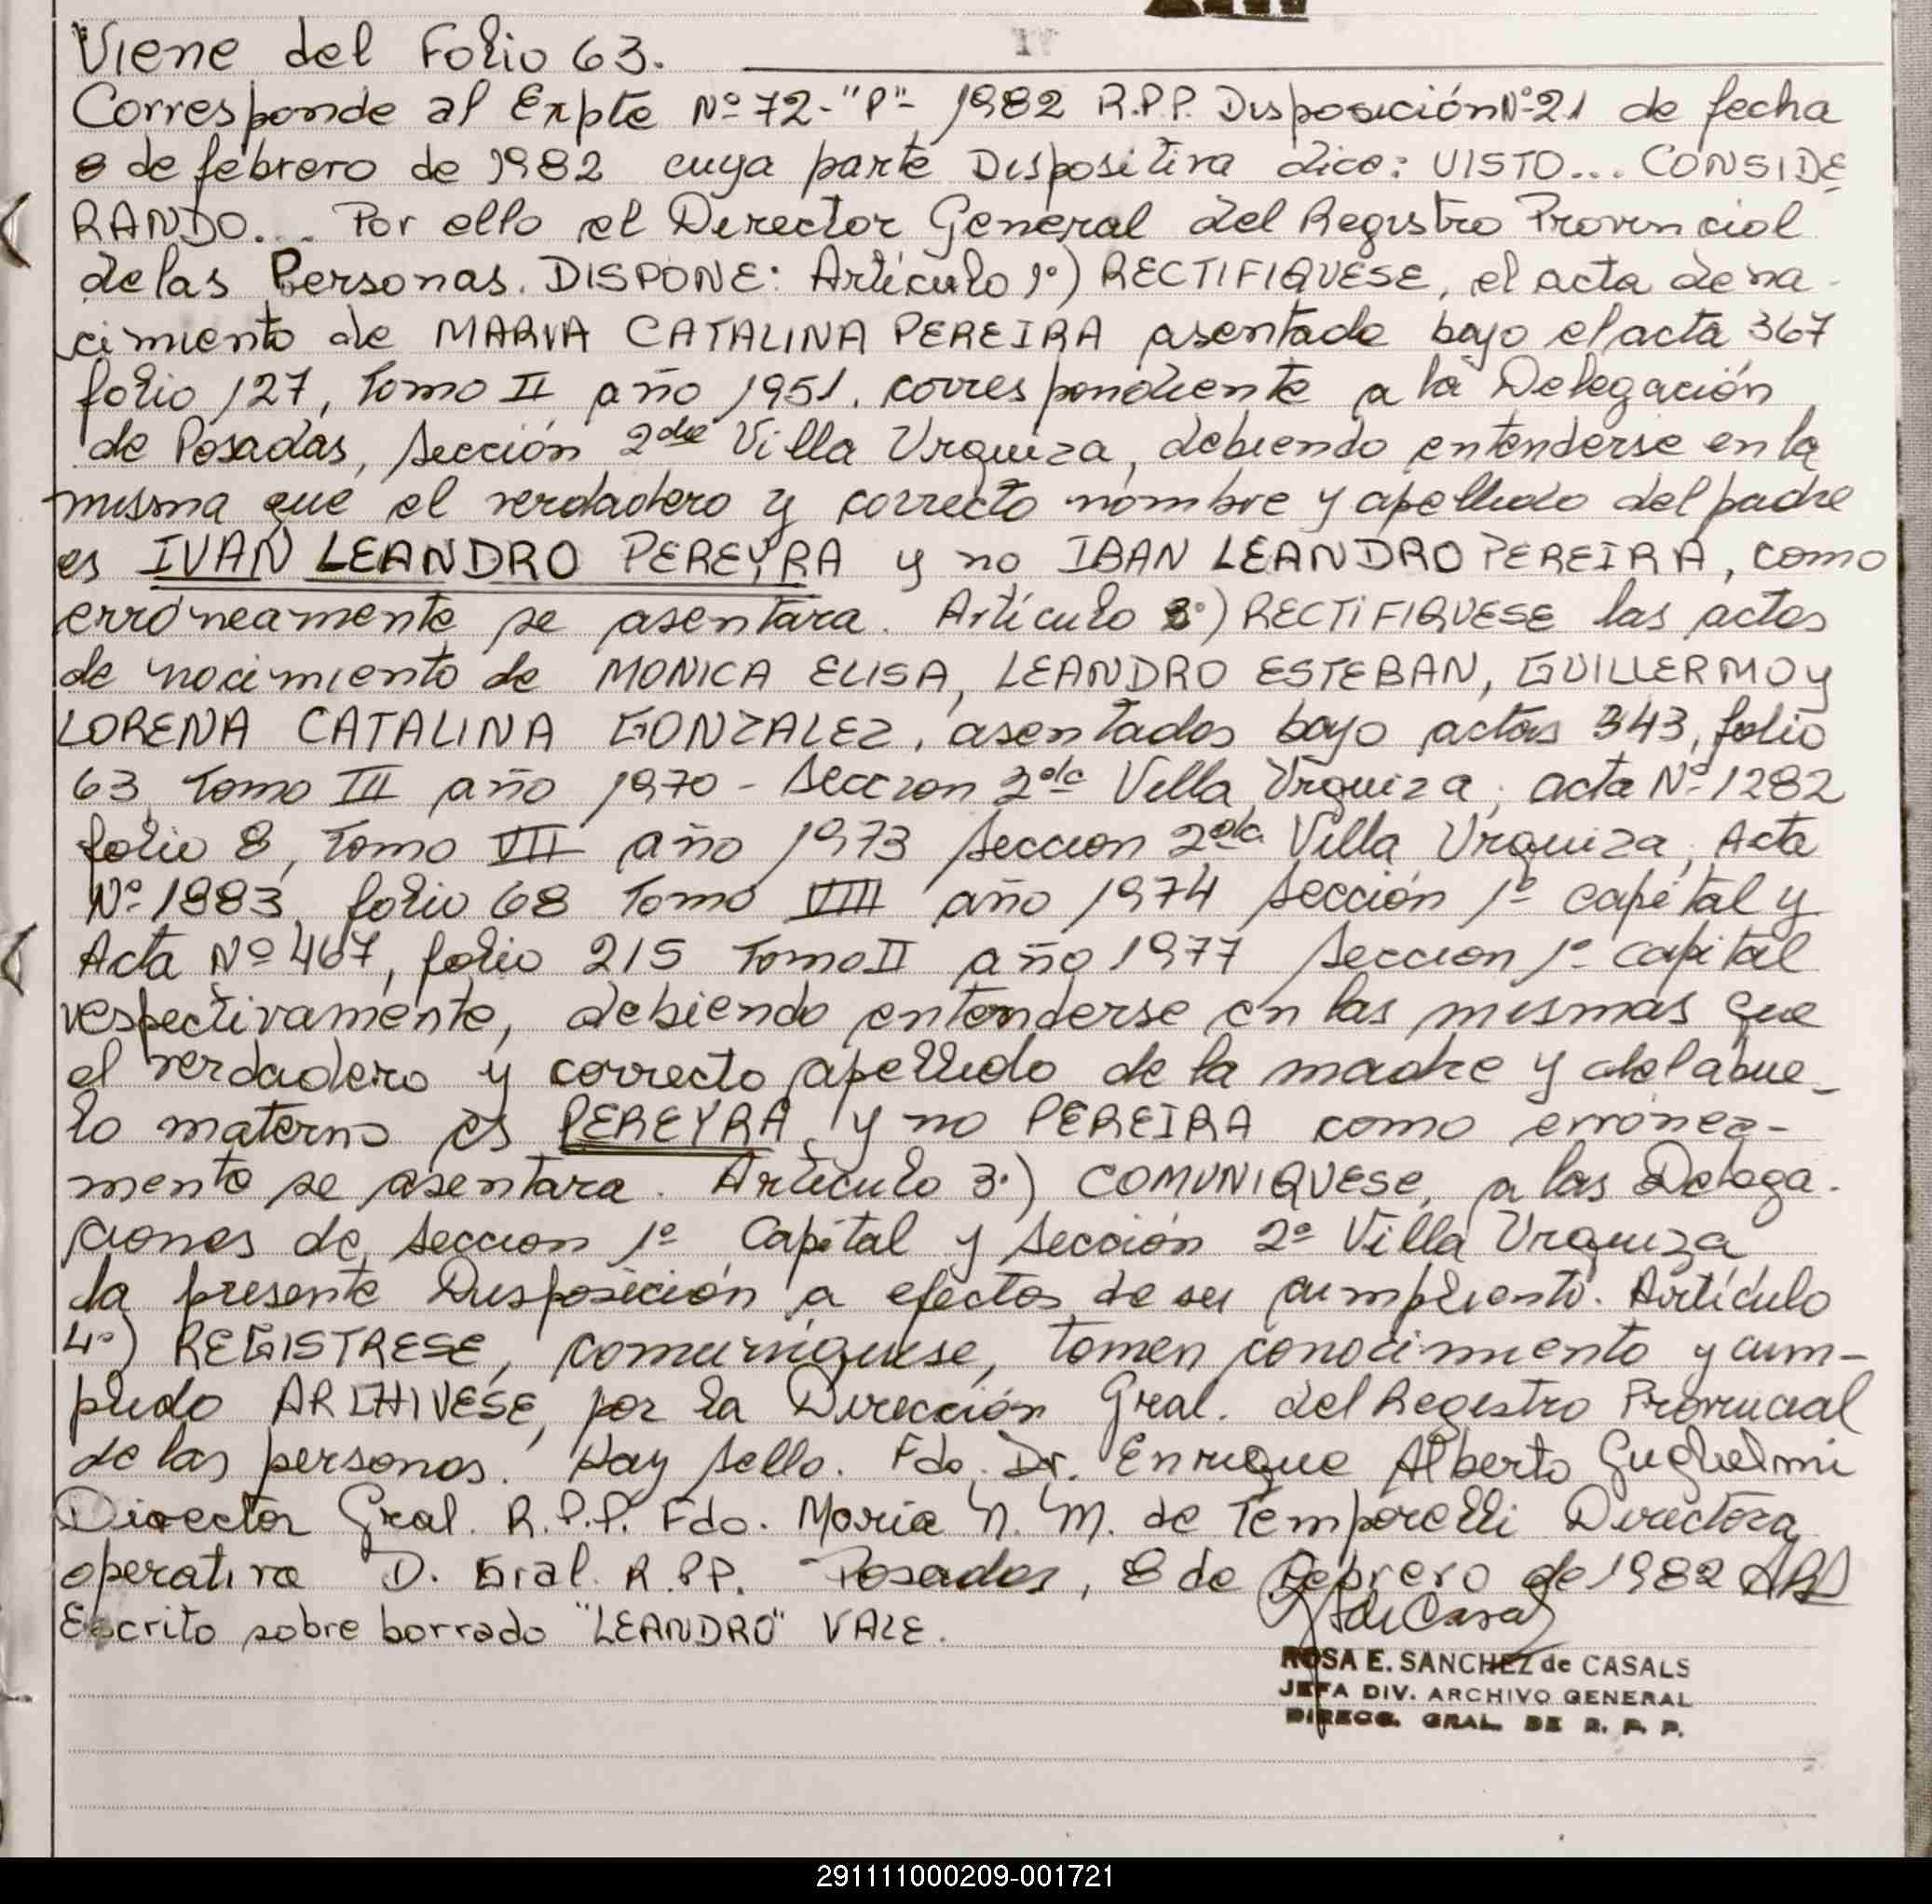 Viene del Folio 63.
Corresponde al Expte Nº 72-"P"- 1982 R.P.P. Disposición Nº 21 de fecha
8 de febrero de 1982 cuya parte Dispositiva dice: VISTO... CONSIDE
RANDO... Por ello el Director General del Registro Provincial
de las Personas. DISPONE: Artículo 1º) RECTIFIQUESE, el acta de na-
cimiento de MARIA CATALINA PEREIRA asentada bajo el acta 367
folio 127, Tomo II año 1951. correspondiente a la Delegación
de Posadas, Sección 2da Villa Urquiza, debiendo entenderse en la
misma que el verdadero y correcto nombre y apellido del padre
es IVAN LEANDRO PEREYRA y no IBAN LEANDRO PEREIRA, como
erróneamente se asentara. Artículo 2º) RECTIFIQUESE las actas
de nacimiento de MONICA ELISA, LEANDRO ESTEBAN, GUILLERMO y
LORENA CATALINA GONZALEZ, asentados bajo actas 343, folio
63, Tomo III año 1970 - Seccion 2da Villa Urquiza; acta Nº 1282
folio 8, Tomo VII año 1973 Seccion 2da Villa Urquiza; Acta
Nº 1883, folio 68 Tomo VIII año 1974 Sección 1º capital y
Acta Nº 467, folio 215 Tomo II año 1977 Seccion 1º capital
respectivamente, debiendo entenderse en las mismas que
el verdadero y correcto apellido de la madre y del abue-
lo materno es PEREYRA y no PEREIRA como errónea-
mente se asentara. Artículo 3º) COMUNIQUESE, a las Delega-
ciones de Seccion 1º Capital y Sección 2º Villa Urquiza
la presente Disposición a efectos de su cumpliento. Artículo
4º) REGISTRESE, comuniquese, tomen conocimiento y cum-
plido ARCHIVESE, por la Dirección Gral. del Registro Provincial
de las personas. Hay sello. Fdo. Dr. Enrique Alberto Guglielmi
Director Gral. R.P.P. Fdo. Maria N. M. de Temporelli Directora
operativa D. Gral. R.P.P. Posadas, 8 de Febrero de 1982
Escrito sobre borrado "LEANDRO" VALE.
ROSA E. SANCHEZ de CASALS
JEFA DIV. ARCHIVO GENERAL
DIRECC. GRAL. DE R. P. P.
291111000209-001721